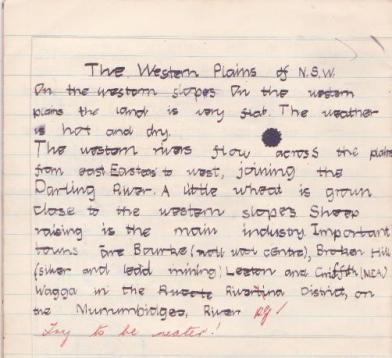 The Western Plains of N.S.W.
On the western slopes On the western
plains the land is very flat. The weather
is hot and dry.
The western rivers flow across the plains
from east Eastas to west, joining the
Darling River. A little wheat is grown
close to the western slopes Sheep
raising is the main industry. Important
towns are Bourke (rail centre), Broken Hill
(silver and lead mining) Leeton and Griffith (M.I.A.)
Wagga in the Riverina District, on
the Murrumbidgee, River
Try to be neater!